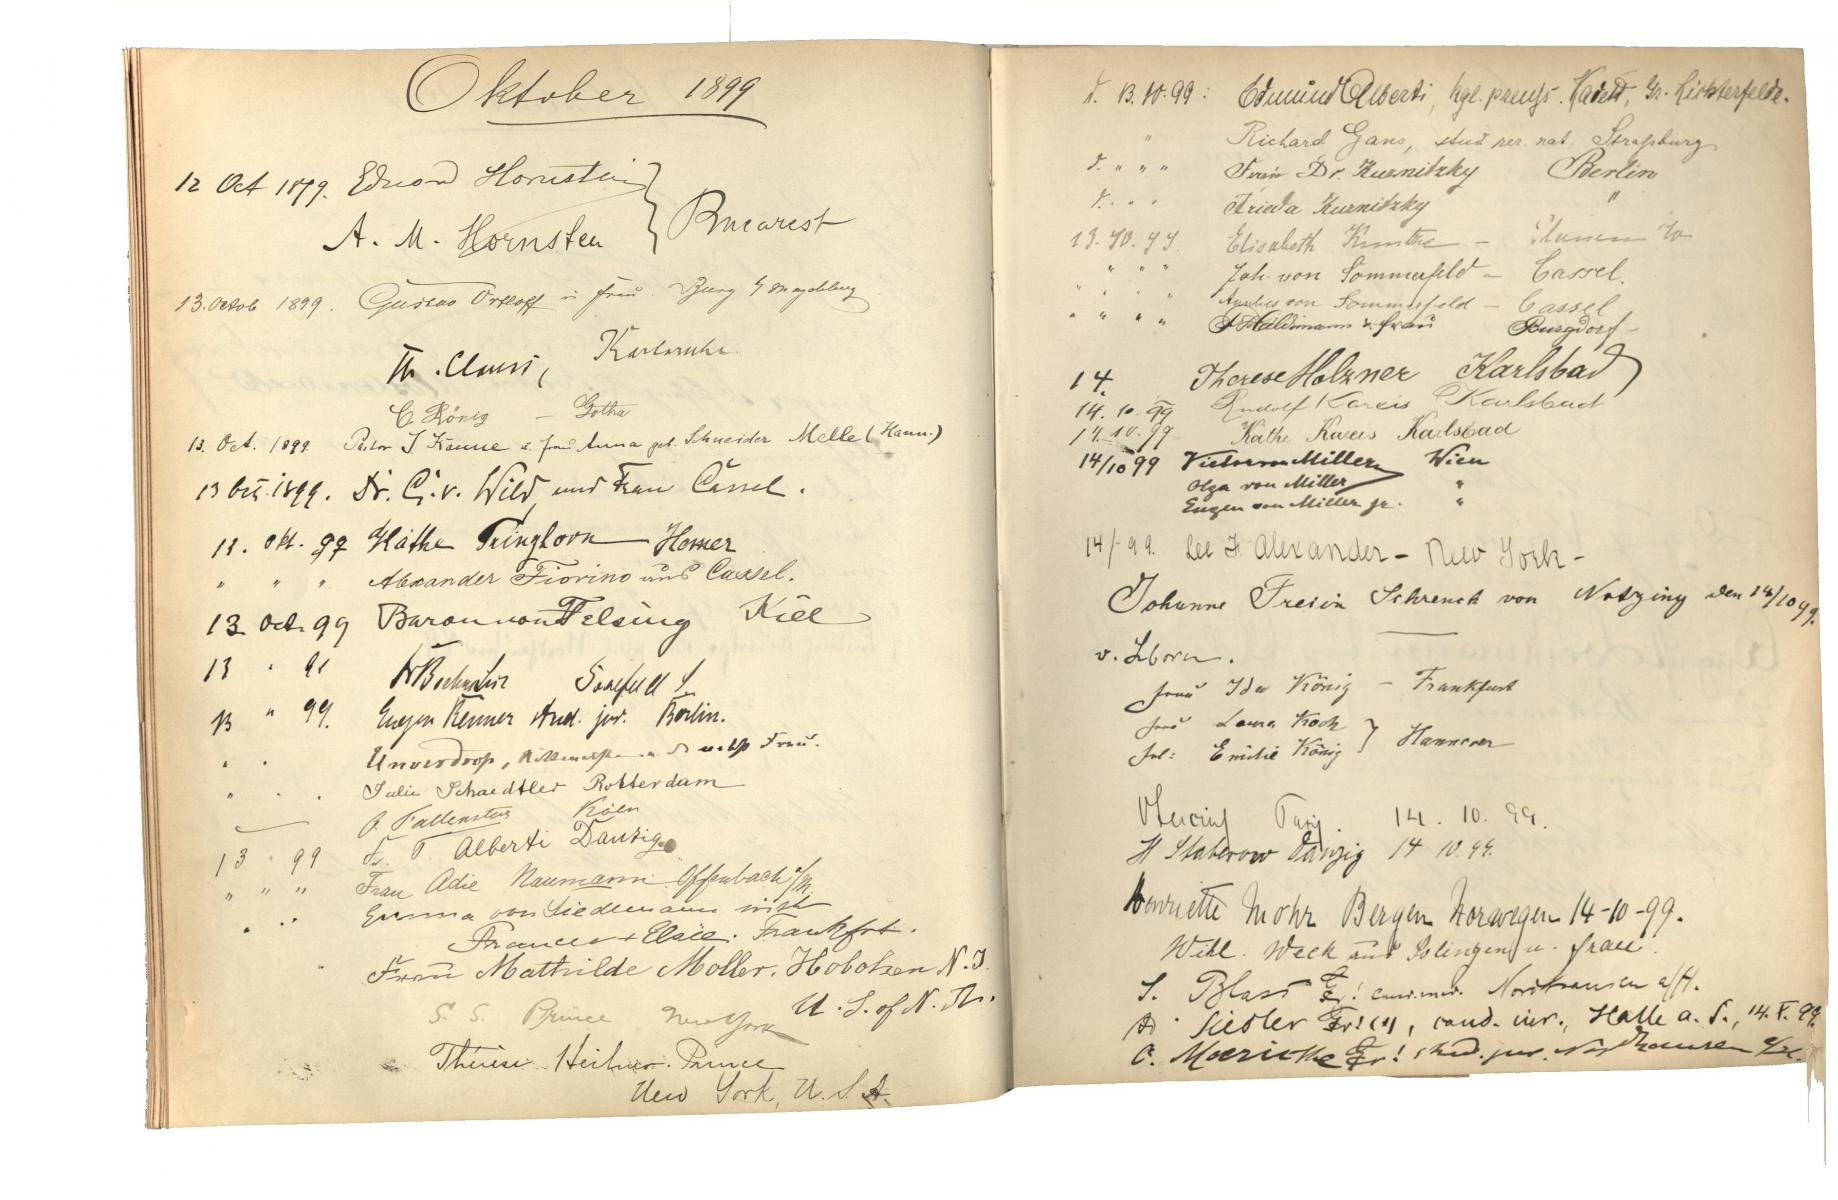 Oktober 1899
12 Oct 1899. Hornstein
A. M. Hornstein } Bucarest
13. Octob 1899. Gustav Ortloff u Frau. Burg b/Magdeburg
Th. Clauss, Karlsruhe
C König – Gotha
13. Oct. 1899 Pastor J Kanne u. Frau Anna geb. Schneider Melle (Hann.)
13 Oct. 1899. Dr. C. v. Wild und Frau Cassel.
Okt. 99 Käthe
" " " Alexander Fiorino aus Cassel.
13 Oct. 99 Baron von Felsing Kiel
13 " 99 Saalfeld
13 " 99. Eugen Renner stud. jur. Berlin.
Frau.
" " " Julie Schaedtler Rotterdam
Köln
13 " 99 T Alberti Danzig.
" " " Frau Adie Naumann Offenbach a/M.
Emma von mit
Frances + Elsie. Frankfurt.
Frau Mathilde Moller. Hoboken N. J.
U. S. of N. A.
S. S. Prince New York
Prince
New York, U. S. A.
d. 13.10.99: Edmund Alberti, kgl. preuss. Kadett, Gr. Lichterfelde.
" Richard Gans, stud rer. nat. Strassburg
d. " " " Frau Dr. Kurnitzky Berlin
d. " " " Frieda Kurnitzky "
13.10.99 Elisabeth
" " " Joh. von Sommerfeld – Cassel.
" " " " von Sommerfeld – Cassel
" " " " Haldimann & Frau Burgdorf
14. Therese Holzner Karlsbad
14.10.99 Rudolf Kareis Karlsbad
14.10.99 Käthe Kareis Karlsbad
14/10 99 Victor von Miller Wien
Olga von Miller "
Eugen von Miller jr. "
14/ 99. Lee H Alexander – New York –
Johanna Freiin Schrenck von Notzing den 14/10 99.
v. Zborn.
Frau Ida König – Frankfurt
Frau Laura Koch
Frl: Emilie König } Hannover
14. 10. 99.
H Staberow Danzig 14 10. 99.
Henriette Mohr Bergen Norwegen 14-10-99.
Wilh. Weck aus Solingen u. Frau.
S. Blass cand. med. Nordhausen a/H.
Siedler cand. iur., Halle a. S., 14. X. 99.
stud. jur. Nordhausen a/H.